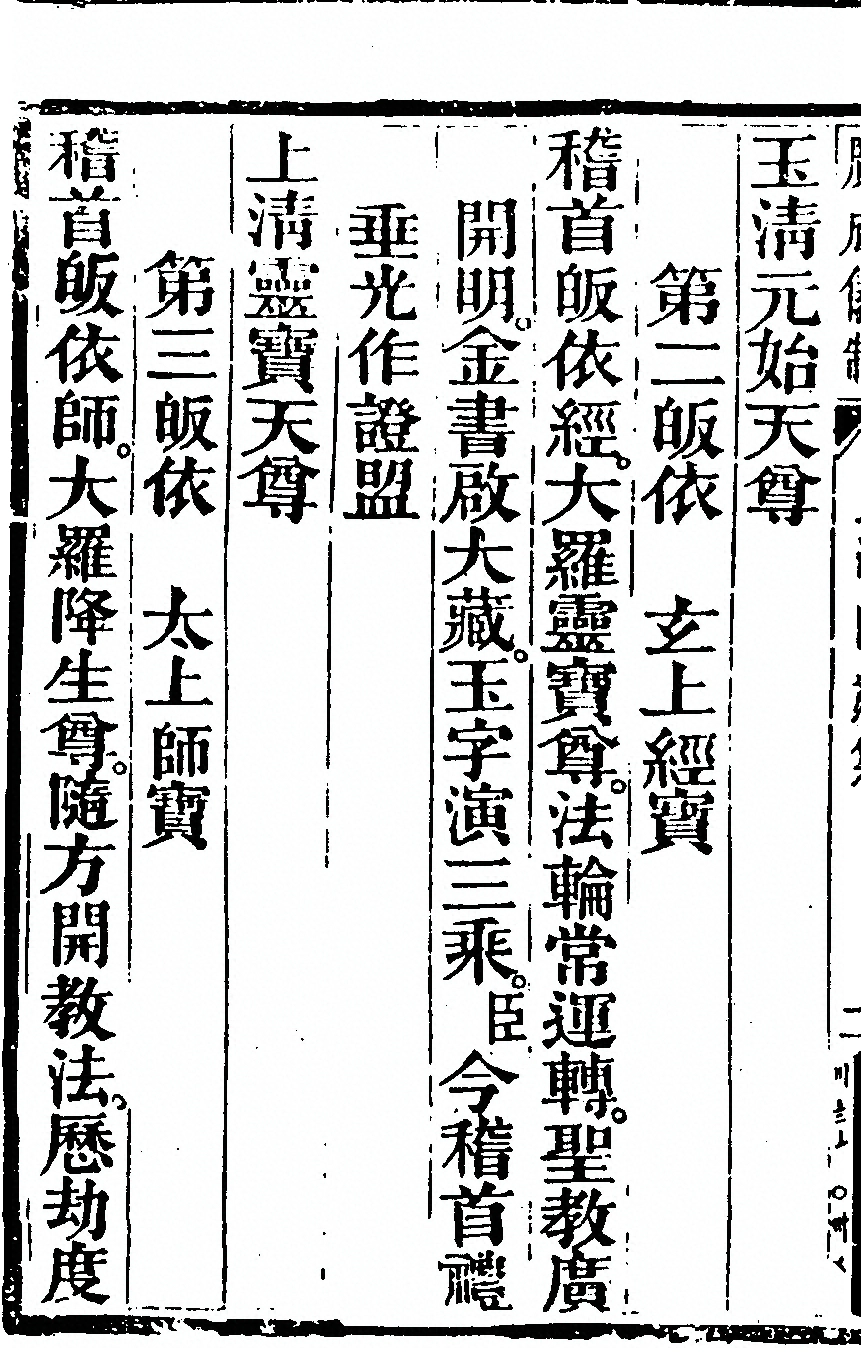 玉清元始天尊
第二皈依　玄上經寶
稽首皈依經。大羅靈寶尊。法輪常運轉。聖教廣
開明。金書啟大藏。玉字演三乘。臣　今稽首禮
垂光作證盟
上清靈寶天尊
第三皈依　太上師寶
稽首皈依師。大羅降生尊。隨方開教法。歷劫度